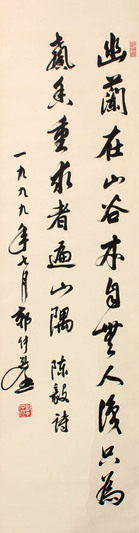 幽蘭在山谷本自無人識只為
馨香重求者遍山隅 陳毅詩
一九九九年七月郭付